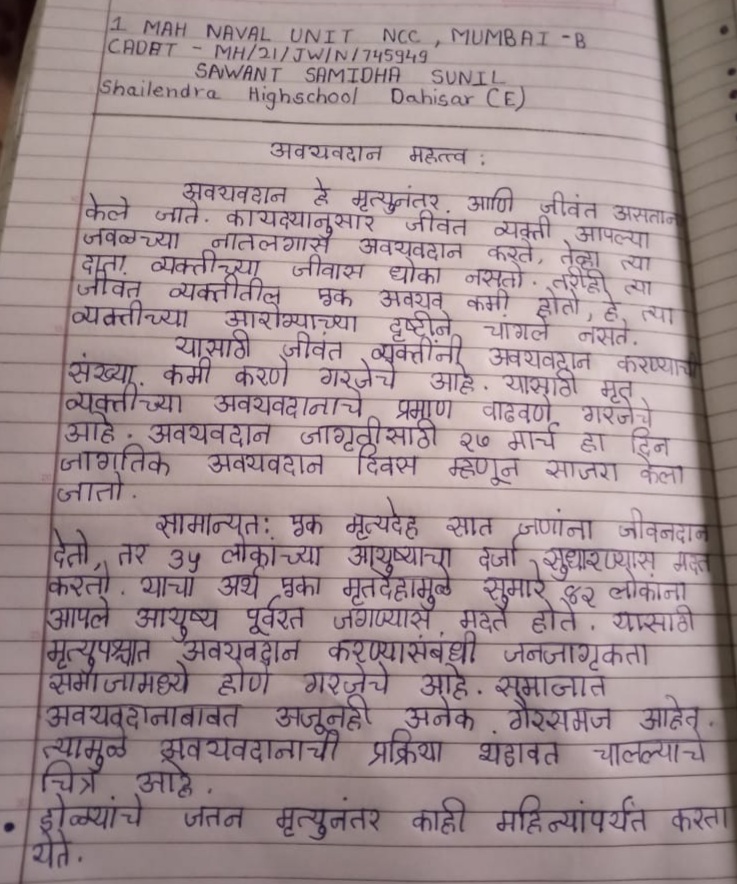 1 MAH NAVAL UNIT NCC, MUMBAI -B
CADET - MH/21/JW/N/745949
SAWANT SAMIDHA SUNIL
Shailendra Highschool Dahisar (E)
अवयवदान महत्त्व :
अवयवदान हे मृत्युनंतर आणि जीवंत असताना
केले जाते. कायद्यानुसार जीवंत व्यक्ती आपल्या
जवळच्या नातलगास अवयवदान करते, तेव्हा त्या
दाता व्यक्तीच्या जीवास धोका नसतो. तरीही त्या
जीवंत व्यक्तीतील एक अवयव कमी होतो, हे त्या
व्यक्तीच्या आरोग्याच्या दृष्टीने चांगले नसते.
यासाठी जीवंत व्यक्तींनी अवयवदान करण्याची
संख्या कमी करणे गरजेचे आहे. यासाठी मृत
व्यक्तीच्या अवयवदानाचे प्रमाण वाढवणे गरजेचे
आहे. अवयवदान जागृतीसाठी २७ मार्च हा दिन
जागतिक अवयवदान दिवस म्हणून साजरा केला
जातो.
सामान्यतः एक मृत्यदेह सात जणांना जीवनदान
देतो, तर ३५ लोकांच्या आयुष्याचा दर्जा सुधारण्यास मदत
करतो. याचा अर्थ एका मृतदेहामुळे सुमारे ४२ लोकांना
आपले आयुष्य पूर्वरत जगण्यास मदत होते. यासाठी
मृत्युपश्चात अवयवदान करण्यासंबंधी जनजागृकता
समाजामध्ये होणे गरजेचे आहे. समाजात
अवयवदानाबाबत अजूनही अनेक गैरसमज आहेत.
त्यामुळे अवयवदानाची प्रक्रिया थडावत चालल्याचे
चित्र आहे.
• डोळ्यांचे जतन मृत्युनंतर काही महिन्यांपर्यंत करता
येते.